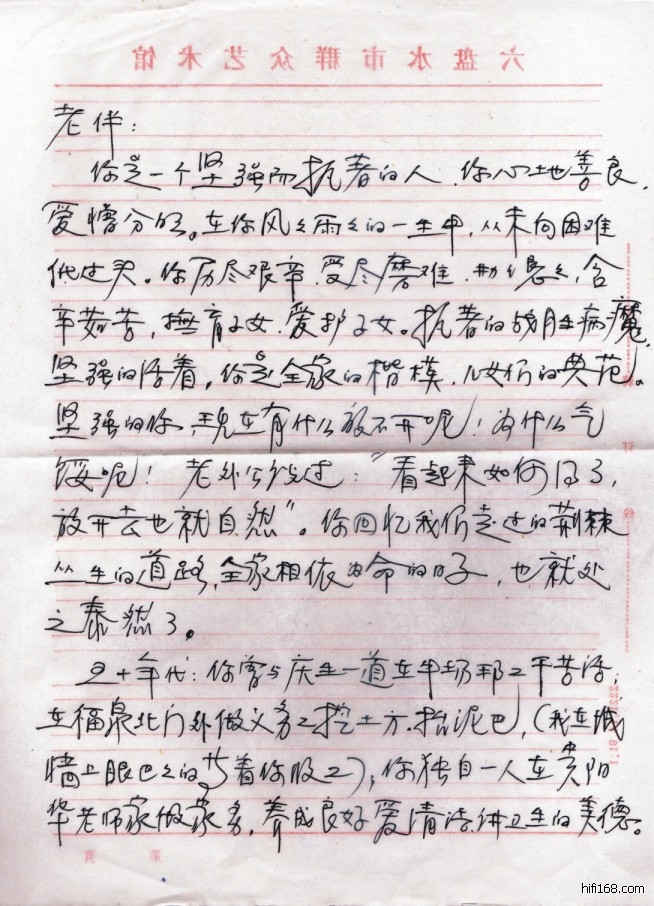 六盘水市群众艺术馆
老伴：
你是一个坚强而执着的人．你心地善良，
爱憎分明。在你风风雨雨的一生中，从未向困难
低过头。你历尽艰辛．受尽磨难．勤勤恳恳，含
辛茹苦，抚育子女．爱护子女。执著的战胜病魔，
坚强的活着，你是全家的楷模，儿女们的典范。
坚强的你，现在有什么放不开呢！为什么气
馁呢！老外公说过：“看起来如何得了，
放开去也就自然”。你回忆我们走过的荆棘
丛生的道路，全家相依为命的日子，也就处
之泰然了。
年代：你曾与庆生一道在牛场邦工干苦活，
在福泉北门外做义务工挖土方．抬泥巴，（我在城
墙上眼巴巴的望着你服工）；你独自一人在贵阳
华老师家做家务，养成良好爱清洁．讲卫生的美德。
hifi168.com